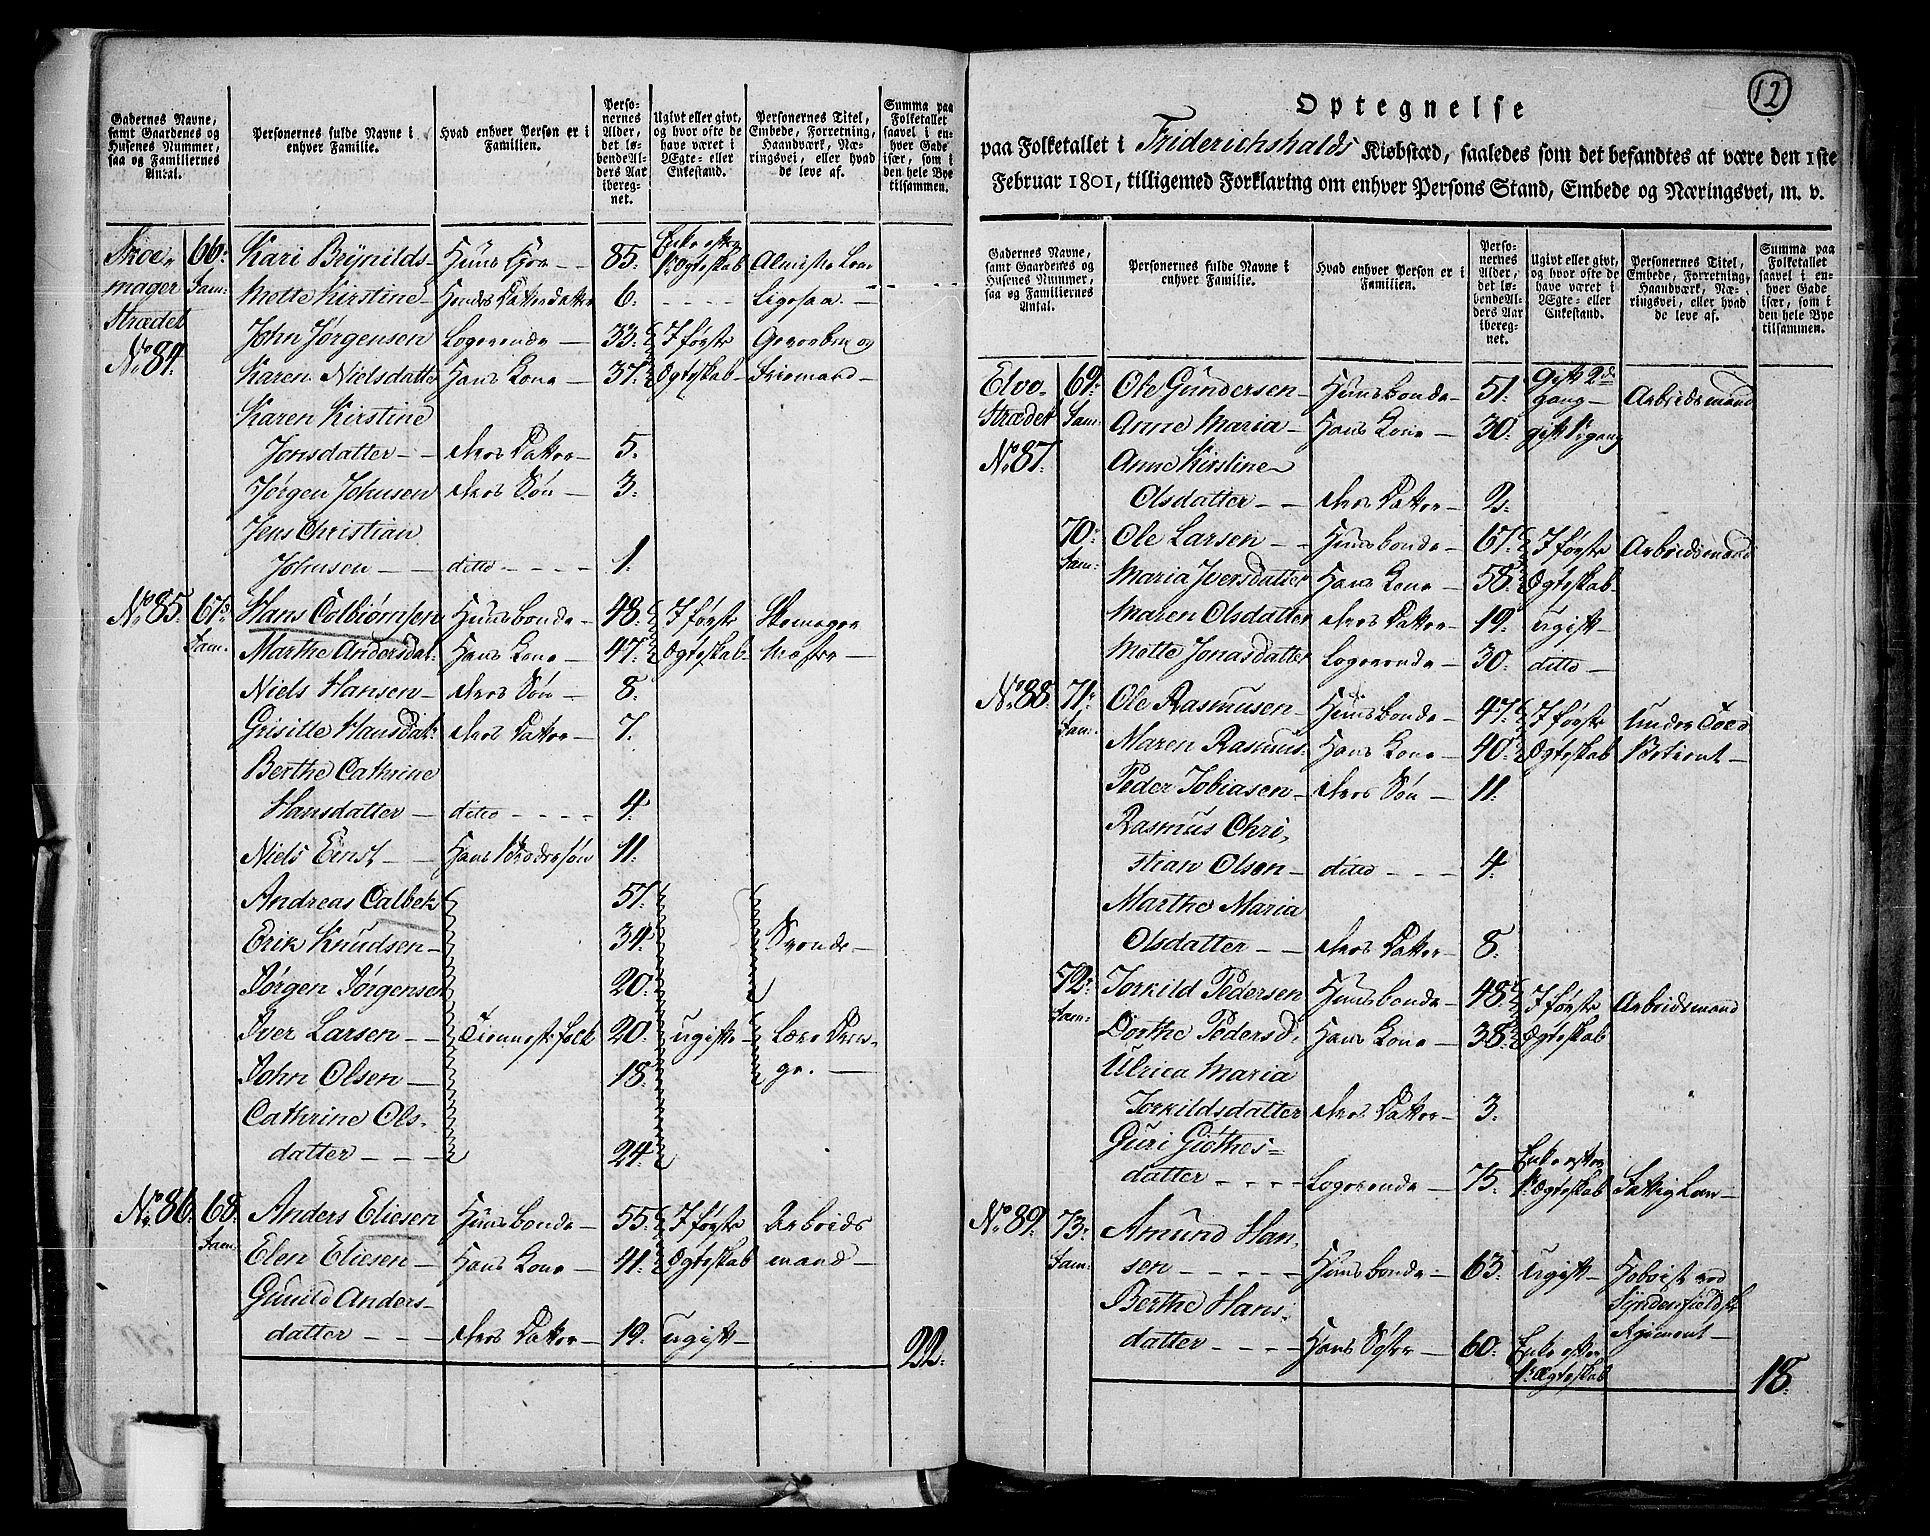 Gadernes Navne, samt Gaardenes og Husenes Nummer, saa og Familiernes Antal.
Personernes fulde Navne i enhver Familie.
Hvad enhver Person er i Familien.
Personernes Alder, det løbende Alders Aar iberegnet.
Ugivt eller givt, og hvor ofte de have været i Ægte- eller Enkestand.
Personernes Titel, Embede, Forretning, Haandværk, Næringsvei, eller hvad de leve af.
Summa paa Folketallet saavel i enhver Gade især, som i den hele Bye tilsammen.
Skoe- 66. Kari Beÿnilds- 85. Enke efter
mager Fam: 1. Ægteskab
Strædet Mette Kirstine Hendes Datterdatter 6. Ligesaa
No 84. John Jørgensen Logerende 33. I første
Karen Nielsdatter Hans Kone 37. Ægteskab
Karen Kirstine
Jonsdatter deres Datter 5.
Jørgen Johnsen deres Søn 3.
Jens Christian
Johnsen ditto 1.
No 85. 67. Hans Colbiørnsen Huusbonde 48. I første Skomager
Fam. Marthe Andersdat. Hans Kone 47. Ægteskab Mester
Niels Hansen deres Søn 8.
Grisille Hansdat. deres Datter 7.
Berthe Cathrine
Hansdatter ditto 4.
Niels Ernst Hans Brodersøn 11.
Andreas Calbek 51.
Erik Knudsen 34. Svende
Jørgen Jørgensen 20.
Iver Larsen Tienneste folk 20. ugifte Lære Dren-
John Olsen 18. ge.
Cathrine Ols-
datter 24.
No 86. 68. Anders Eliesen Huusbonde 55. I første Arbeids
Fam. Elen Eliesen Hans Kone 41. Ægteskab mand
Gunild Anders-
datter deres Datter 19. ugift
22.
12
Optegnelse
paa Folketallet i Friderichshalds Kiøbstæd, saaledes som det befandtes at være den 1ste
Februar 1801, tilligemed Forklaring om enhver Persons Stand, Embede og Næringsvei, m. v.
Gadernes Navne, samt Gaardenes og Husenes Nummer, saa og Familiernes Antal.
Personernes fulde Navne i enhver Familie.
Hvad enhver Person er i Familien.
Personernes Alder, det løbende Alders Aar iberegnet.
Ugivt eller givt, og hvor ofte de have været i Ægte- eller Enkestand.
Personernes Titel, Embede, Forretning, Haandværk, Næringsvei, eller hvad de leve af.
Summa paa Folketallet saavel i enhver Gade især, som i den hele Bye tilsammen.
Elve- 69. Ole Gundersen Huusbonde 51. Gift 2de Gang Arbeidsmand
Strædet Fam: Anne Maria Hans Kone 30. gift 1. gang
No 87. Anne Kirstine
Olsdatter deres Datter 2.
70. Ole Larsen Huusbonde 67. I første Arbeidsmand
Fam: Maria Iversdatter Hans Kone 58. Ægteskab
Maren Olsdatter deres Datter 19. ugift
Mette Jonasdatter Logerende 30. ditto
No 88. 71. Ole Rasmusen Huusbonde 47. I første Under Told
Fam: Maren Rasmus- Hans Kone 40. Ægteskab Betient
Peder Tobiasen deres Søn 11.
Rasmus Chri-
stian Olsen ditto 4.
Marthe Maria
Olsdatter deres Datter 8.
72. Torkild Pedersen Huusbonde 48. I første Arbeidsmand
Fam: Dorthe Pedersd. Hans Kone 38. Ægteskab
Ulrica Maria
Torkildsdatter deres Datter 3.
Guri Giøthes- Enke efter
datter Logerende 75. 1. Ægteskab Fattig Lem
No 89. 73. Amund Han-
Fam: sen Huusbonde 63. Ugift Hoboist ved
Berthe Hans- Syndenfieldske
datter Hans Søster 60. Enke efter Regiment
1. Ægteskab
18.